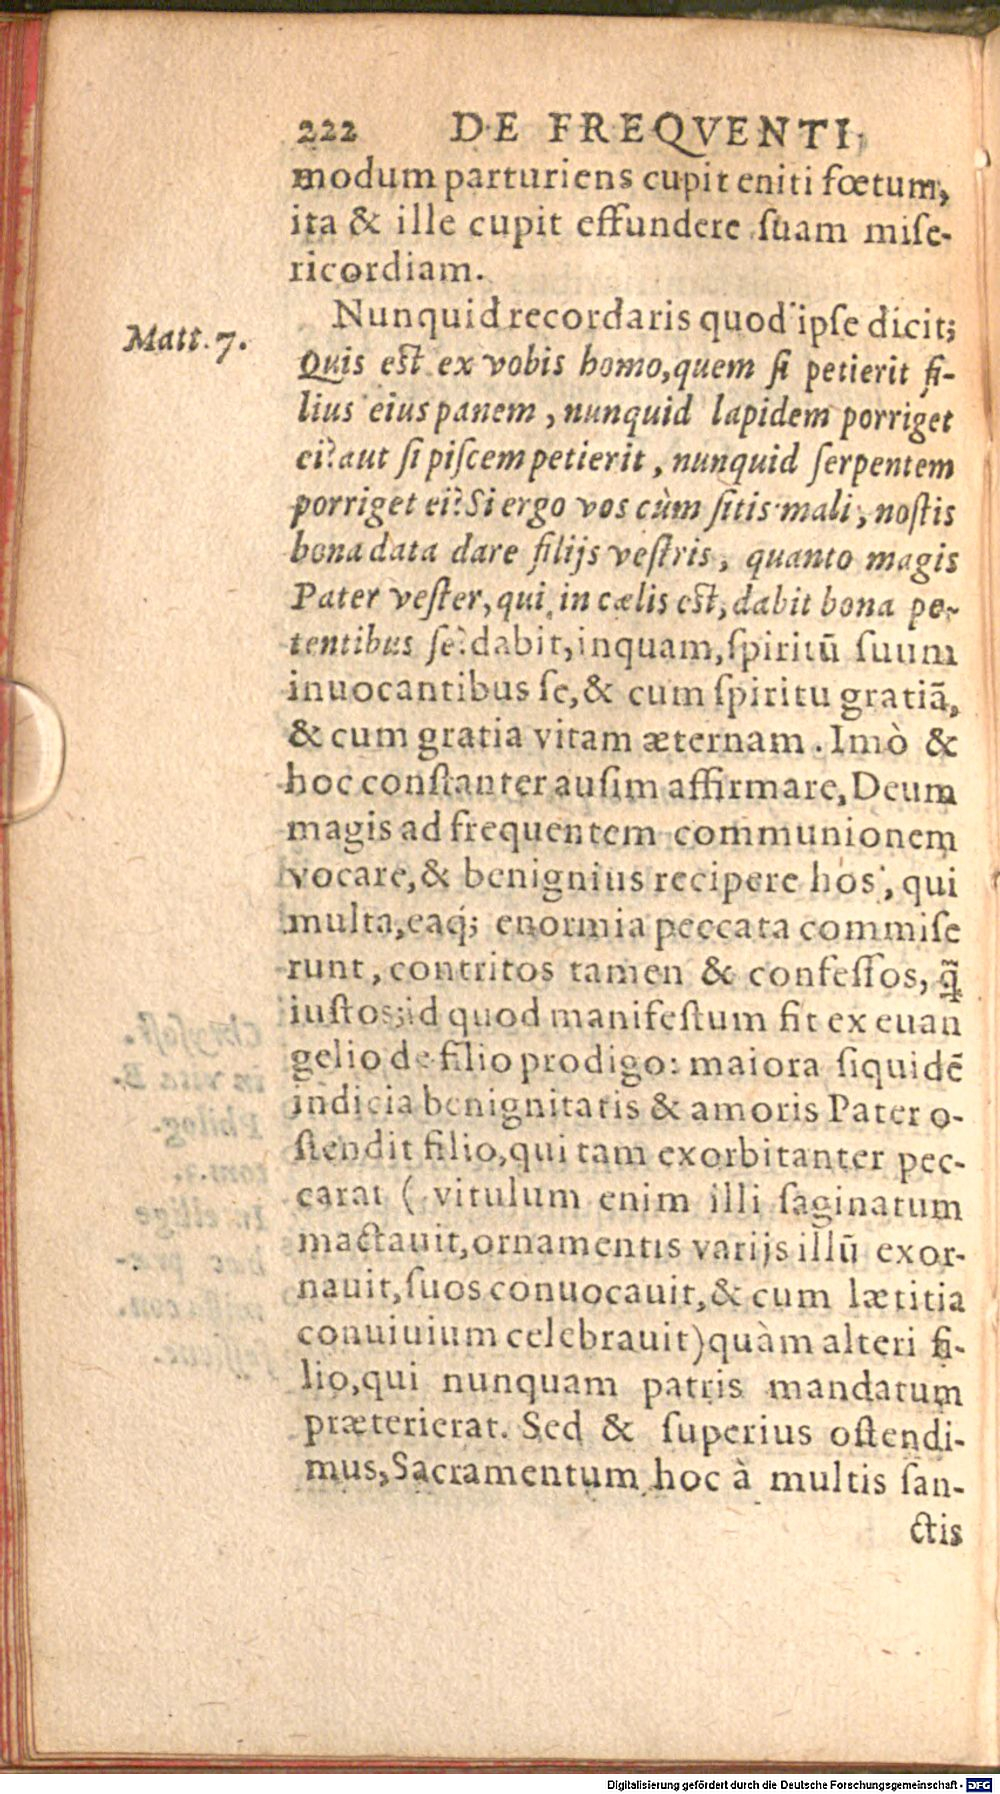 222 DE FREQVENTI
modum parturiens cupit eniti fœtum,
ita & ille cupit effundere ſuam miſe-
ricordiam.
Nunquid recordaris quod ipſe dicit;
Matt. 7.
Quis eſt ex vobis homo, quem ſi petierit fi-
lius eius panem, nunquid lapidem porriget
ei? aut ſi piſcem petierit, nunquid ſerpentem
porriget ei? Si ergo vos cùm ſitis mali, noſtis
bona data dare filijs veſtris, quanto magis
Pater veſter, qui in cælis eſt, dabit bona pe-
tentibus ſe? dabit, inquam, ſpiritū ſuum
inuocantibus ſe, & cum ſpiritu gratiā,
& cum gratia vitam æternam. Imò &
hoc conſtanter auſim affirmare, Deum
magis ad frequentem communionem
vocare, & benignius recipere hos, qui
multa, eaq́; enormia peccata commiſe
runt, contritos tamen & confeſſos, q̃
iuſtos; id quod manifeſtum fit ex euan
gelio de filio prodigo: maiora ſiquidē
indicia benignitatis & amoris Pater o-
ſtendit filio, qui tam exorbitanter pec-
carat ( vitulum enim illi ſaginatum
mactauit, ornamentis varijs illū exor-
nauit, ſuos conuocauit, & cum lætitia
conuiuium celebrauit) quàm alteri fi-
lio, qui nunquam patris mandatum
præterierat. Sed & ſuperius oſtendi-
mus, Sacramentum hoc à multis ſan-
ctis
Digitalisierung gefördert durch die Deutsche Forschungsgemeinschaft - DFG